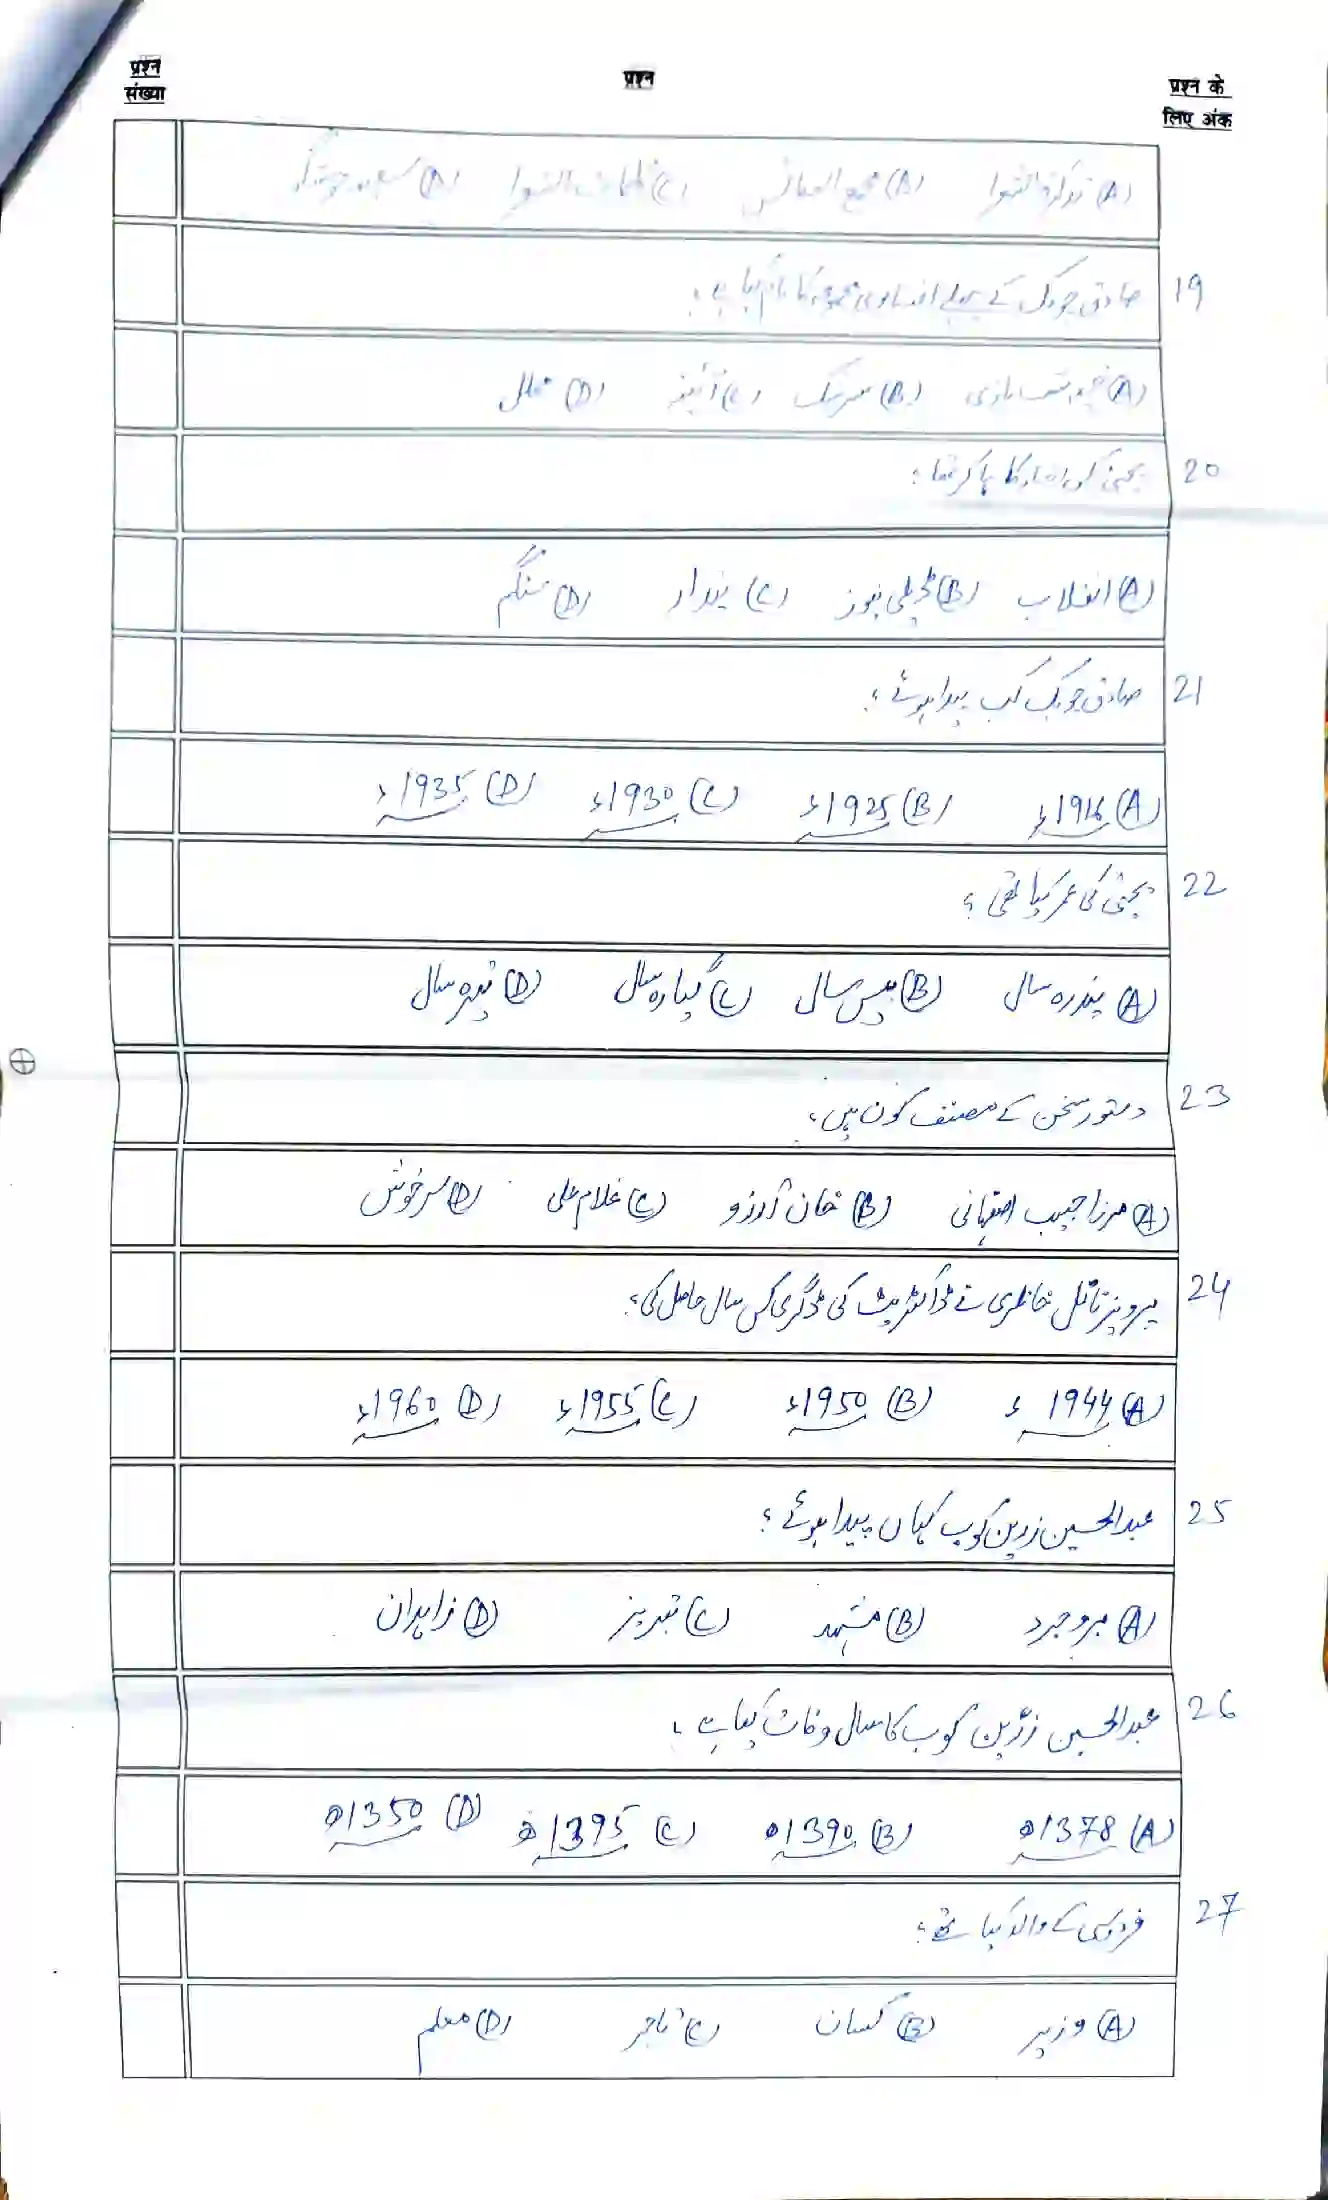 प्रश्न संख्या
प्रश्न
प्रश्न के लिए अंक
(A) تذکرۃ الشعرا (A) مجمع النفائس (C) (D)
19 صادق چوبک کے پہلے افسانوی مجموعہ کا نام کیا ہے؟
(A) خیمہ شب بازی (B) (C) آئینہ (D)
20 یحییٰ کس اخبار کا ہاکر تھا؟
(A) انقلاب (B) ڈیلی نیوز (C) (D) سنگم
21 صادق چوبک کب پیدا ہوئے؟
(A) 1916ء (B) 1925ء (C) 1930ء (D) 1935ء
22 یحییٰ کی عمر کیا تھی؟
(A) پندرہ سال (B) بیس سال (C) گیارہ سال (D) تیرہ سال
23 دستور سخن کے مصنف کون ہیں؟
(A) مرزا حبیب اصفہانی (B) خان آرزو (C) غلام علی (D) سرخوش
24 پرویز ناتل خانلری نے ڈاکٹریٹ کی ڈگری کس سال حاصل کی؟
(A) 1944ء (B) 1950ء (C) 1955ء (D) 1960ء
25 عبدالحسین زرین کوب کہاں پیدا ہوئے؟
(A) بروجرد (B) مشہد (C) تبریز (D) زاہدان
26 عبدالحسین زرّین کوب کا سال وفات کیا ہے؟
(A) 1378ھ (B) 1390ھ (C) 1395ھ (D) 1350ھ
27 فردوسی کے والد کیا تھے؟
(A) وزیر (B) کسان (C) تاجر (D) معلم